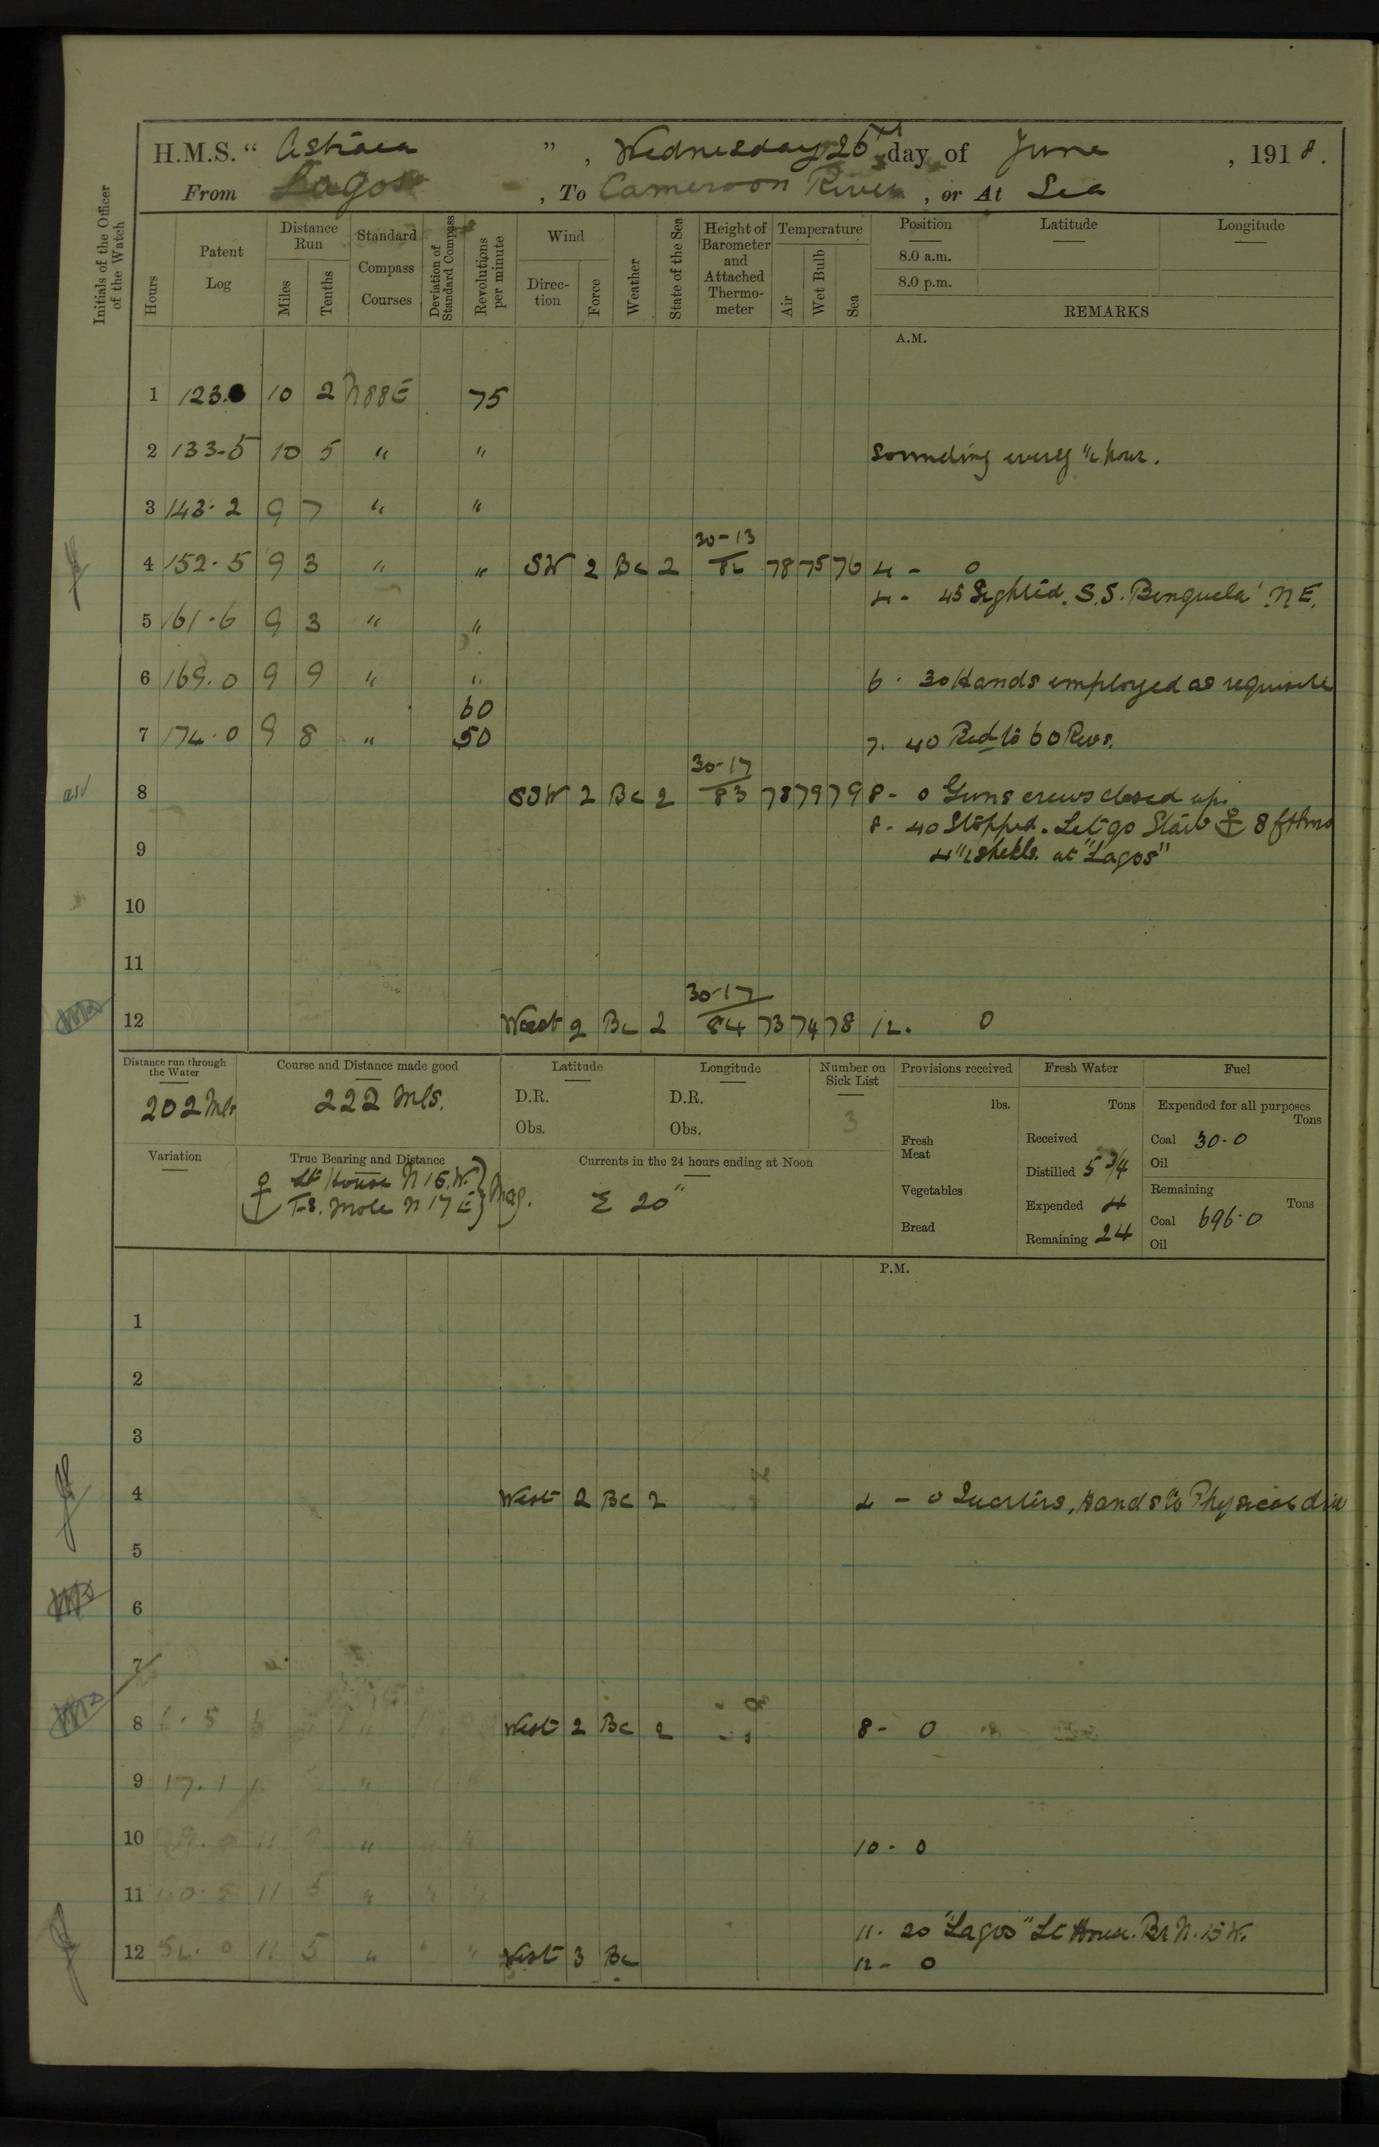 H.M.S. " Astraea " , Wednesday 26th day of June , 1918.
From Lagos , To Cameroon River , or At Sea
Initials of the Officer of the Watch
Hours
Patent Log
Distance Run
Miles
Tenths
Standard Compass Courses
Deviation of Standard Compass
Revolutions per minute
Wind
Direction
Force
Weather
State of the Sea
Height of Barometer and Attached Thermometer
Temperature
Air
Wet Bulb
Sea
Position Latitude Longitude
8.0 a.m.
8.0 p.m.
REMARKS
A.M.
1 123. 10 2 N88E 75
2 133.5 10 5 " " Sounding every ½ hour.
3 143.2 9 7 " "
30-13
4 152.5 9 3 " " SW 2 Bc 2 78 75 76 4 - 0
4 - 45 Sighted. S.S. Benguela' N E.
5 161.6 9 3 " "
6 169.0 9 9 " " 6. 30 Hands employed as requisite
60
7 174.0 9 8 " 50 7. 40 Red to 60 Revs.
30-17
8 SSW 2 Bc 2 83 78 79 79 8 - 0 Guns crews closed up.
8 - 40 Stopped. Let go Starb ⚓ 8 fthms
9 4 ½ Shekls. at "Lagos"
10
11
30-17
12 West 2 Bc 2 84 73 74 78 12. 0
Distance run through the Water
202 Mls
Course and Distance made good
222 Mls.
Latitude
D.R.
Obs.
Longitude
D.R.
Obs.
Number on Sick List
3
Provisions received
lbs.
Fresh Meat
Vegetables
Bread
Fresh Water
Tons
Received
Distilled 5 3/4
Expended 4
Remaining 24
Fuel
Expended for all purposes
Tons
Coal 30.0
Oil
Remaining
Tons
Coal 696.0
Oil
Variation
True Bearing and Distance
Lt House N 15 W.
T.S. Mole N 17 E } Mag.
Currents in the 24 hours ending at Noon
E 20"
P.M.
1
2
3
4 West 2 Bc 2 4 - 0 Quarters, Hands to Physical drill
5
6
7
8 . 5 West 2 Bc 2 8 - 0
9 17.1 "
10 11 " 10 - 0
11 11 5 " " "
11. 20 "Lagos" Lt House. Br N. 15 W.
12 11 5 " " " West 3 Bc 12 - 0